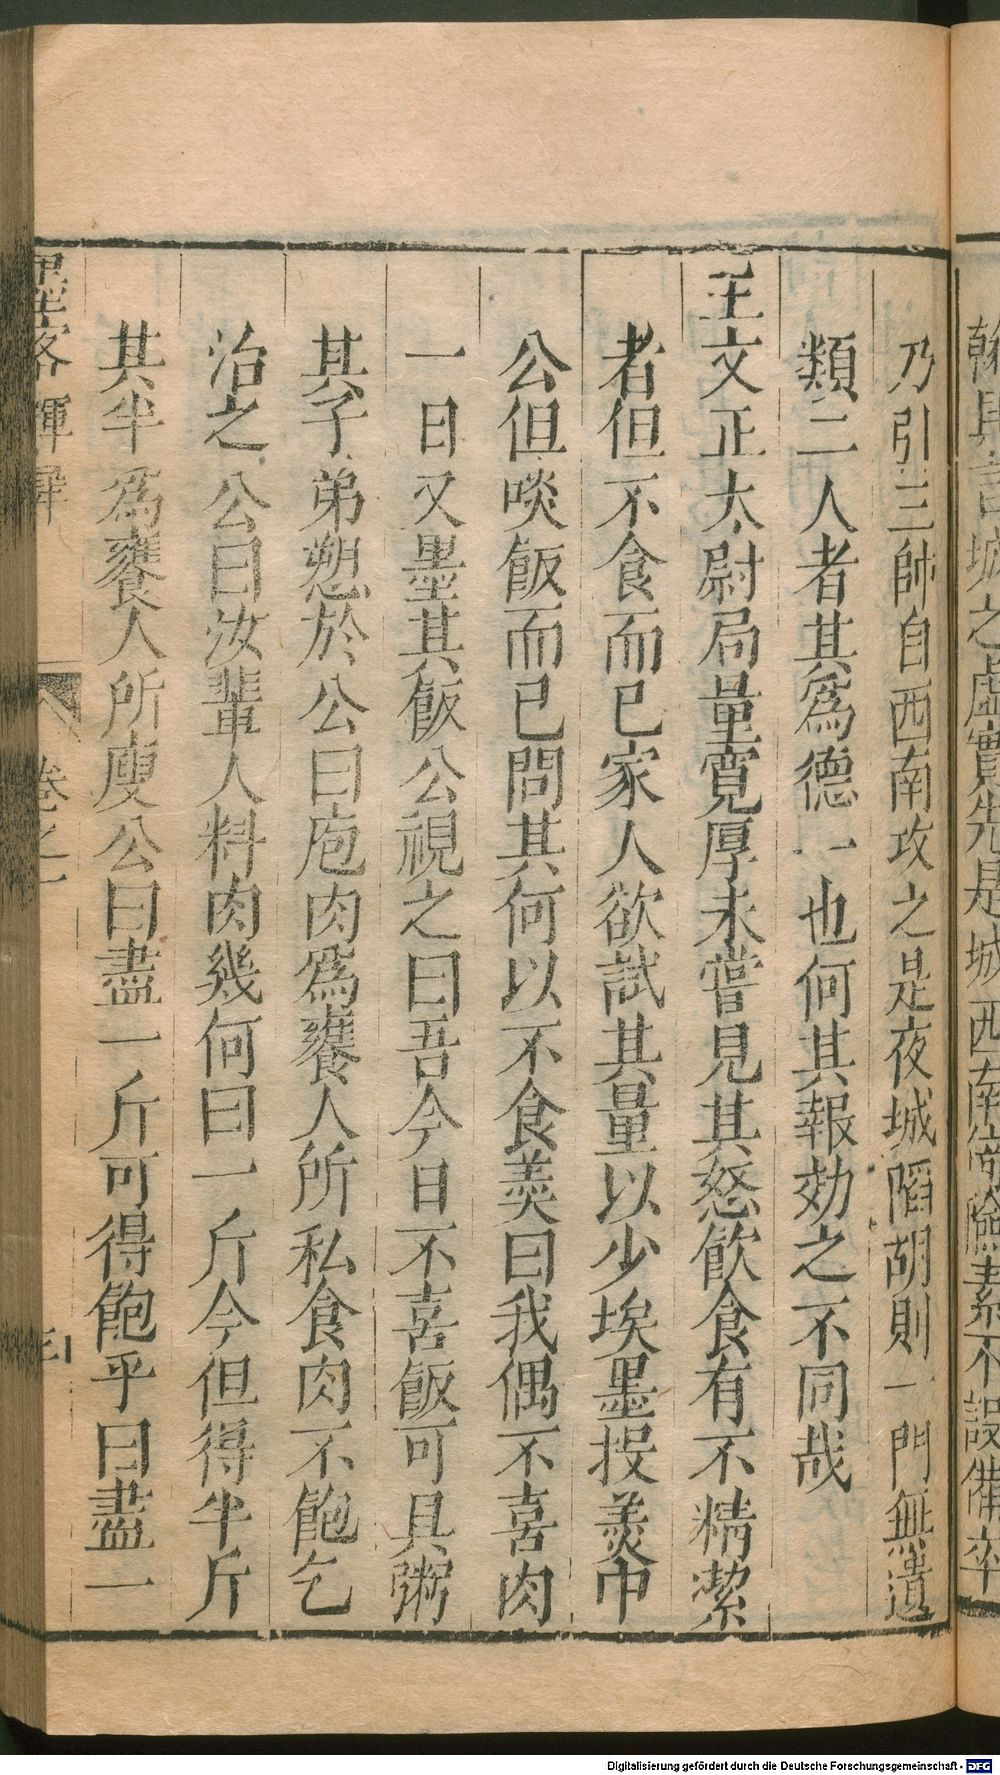 翰具言城之虛實先是城西南帝險素不設備卒
乃引三帥自西南攻之是夜城陷胡則一門無遺
類二人者其爲德一也何其報効之不同哉
王文正太尉局量寬厚未嘗見其怒飲食有不精潔
者但不食而已家人欲試其量以少埃墨投羹中
公但啖飯而已問其何以不食羹曰我偶不喜肉
一日又墨其飯公視之曰吾今日不喜飯可具粥
其子弟愬於公曰庖肉爲饔人所私食肉不飽乞
治之公曰汝輩人料肉幾何曰一斤今但得半斤
其半爲饔人所廋公曰盡一斤可得飽乎曰盡一
墨客揮犀
卷之一
Digitalisierung gefördert durch die Deutsche Forschungsgemeinschaft - DFG